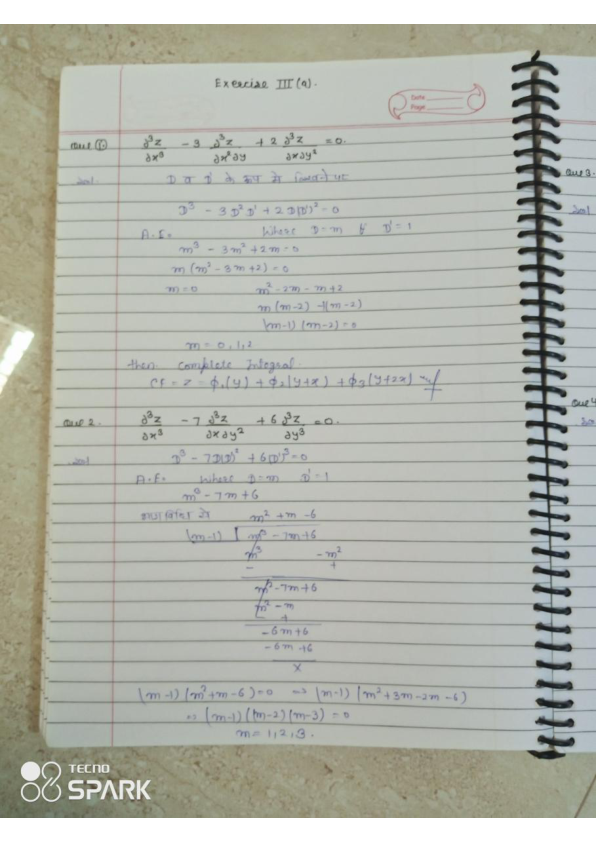 Exercise III (a).
Date
Page
Que ①. ∂³z/∂x³ - 3 ∂³z/∂x²∂y + 2 ∂³z/∂x∂y² = 0.
Sol. D व D' के रूप में लिखने पर
D³ - 3D²D' + 2D(D')² = 0
A.E. Where D=m & D'=1
m³ - 3m² + 2m = 0
m(m² - 3m + 2) = 0
m=0 m² - 2m - m + 2
m(m-2) -1(m-2)
(m-1)(m-2) = 0
m = 0, 1, 2
then complete Integral
CF = z = ϕ₁(y) + ϕ₂(y+x) + ϕ₃(y+2x)
Que 2. ∂³z/∂x³ - 7 ∂³z/∂x∂y² + 6 ∂³z/∂y³ = 0.
Sol D³ - 7D(D')² + 6(D')³ = 0
A.E. Where D=m D'=1
m³ - 7m + 6
विधि से m² + m - 6
(m-1) m³ - 7m + 6
m³ - m²
- +
m² - 7m + 6
m² - m
- +
-6m + 6
-6m + 6
x
(m-1)(m²+m-6) = 0 ⇒ (m-1)(m²+3m-2m-6)
⇒ (m-1)(m-2)(m-3) = 0
m = 1, 2, 3.
Que 3.
Sol
Que 4
TECNO
SPARK